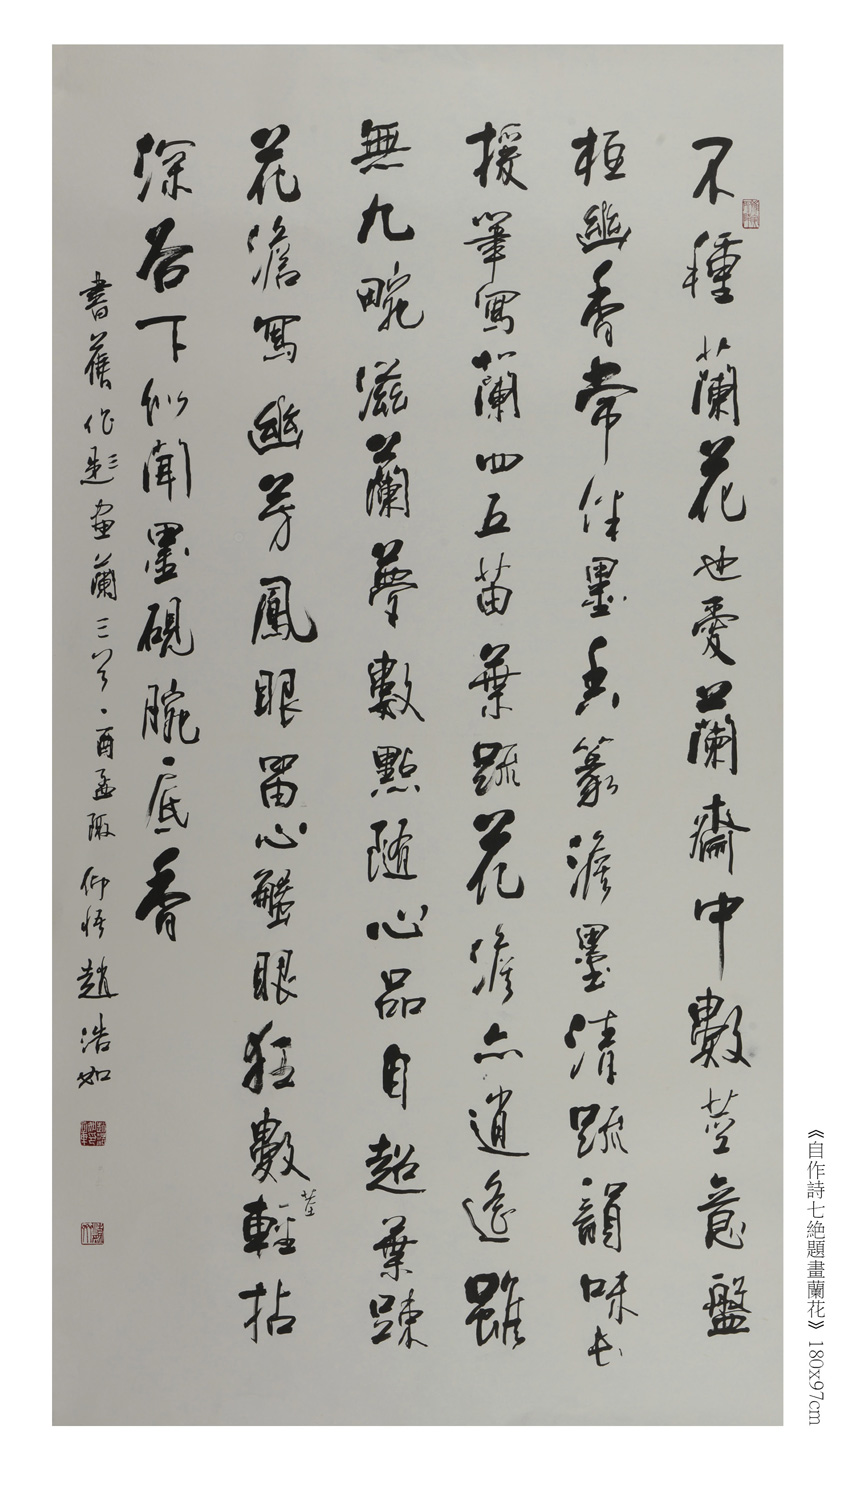 不種蘭花也愛蘭齋中數莖意盤
桓幽香常伴墨香篆澹墨清疏韻味長
援筆寫蘭四五苗葉疏花澹亦逍遙雖
無九畹滋蘭夢數點隨心品自超葉疎
花澹寫幽芳鳳眼留心眼狂數莖輕拈
深谷下似聞墨硯腕底香
書舊作題畫蘭三首酉孟陬仰悟趙浩如
《自作詩七絶題畫蘭花》180x97cm